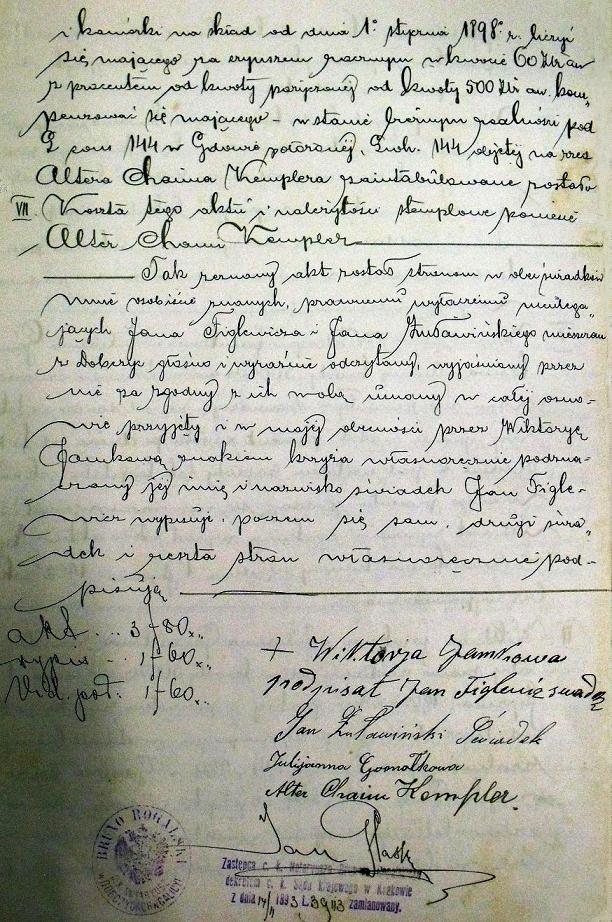 i komórki na skład od dnia 1º stycznia 1898º r. liczyć
się mającego za czynszem rocznym w kwocie 60 Złr aw
z procentem od kwoty pożyczonej od kwoty 500 Złr aw. kom-
pensować się mającego – w stanie biernym realności pod
L cons 144 w Gdowie położonej, Lwh. 144 objętej na rzecz
Altera Chaima Kemplera zaintabulowane zostało
VII. Koszta tego aktu i należytości stemplowe poniesie
Alter Chaim Kempler
Tak zeznany akt został stronom w obec świadków
mnie osobiście znanych, prawnemu wyłączeniu nieulega-
jących Jana Figlewicza i Jana Żuławińskiego mieszczan
z Dobczyc głośno i wyraźnie odczytany, wyjaśniony przez
nie za zgodny z ich wolą uznany w całej osno-
wie przyjęty i w mojej obecności przez Wiktoryę
Jamkową znakiem krzyża własnoręcznie podzna-
czony jej imię i nazwisko świadek Jan Figle-
wicz wypisuje, poczem się sam, drugi świa-
dek i reszta stron własnoręcznie pod-
pisują
akt ... 3 f 80x..
wypis .. 1 f 60x..
1 f 60x..
+ Wiktorja Jamkowa
podpisał Jan Figlewicz świadek
Jan Żuławiński Świadek
Julijanna Gomółkowa
Alter Chaim Kempler.
Jan
BRUNO ROGALSKI
Zastępca c. k. Notaryusza
dekretem c. k. Sądu Krajowego w Krakowie
z dnia 14/11 1893 L. 39113 zamianowany.